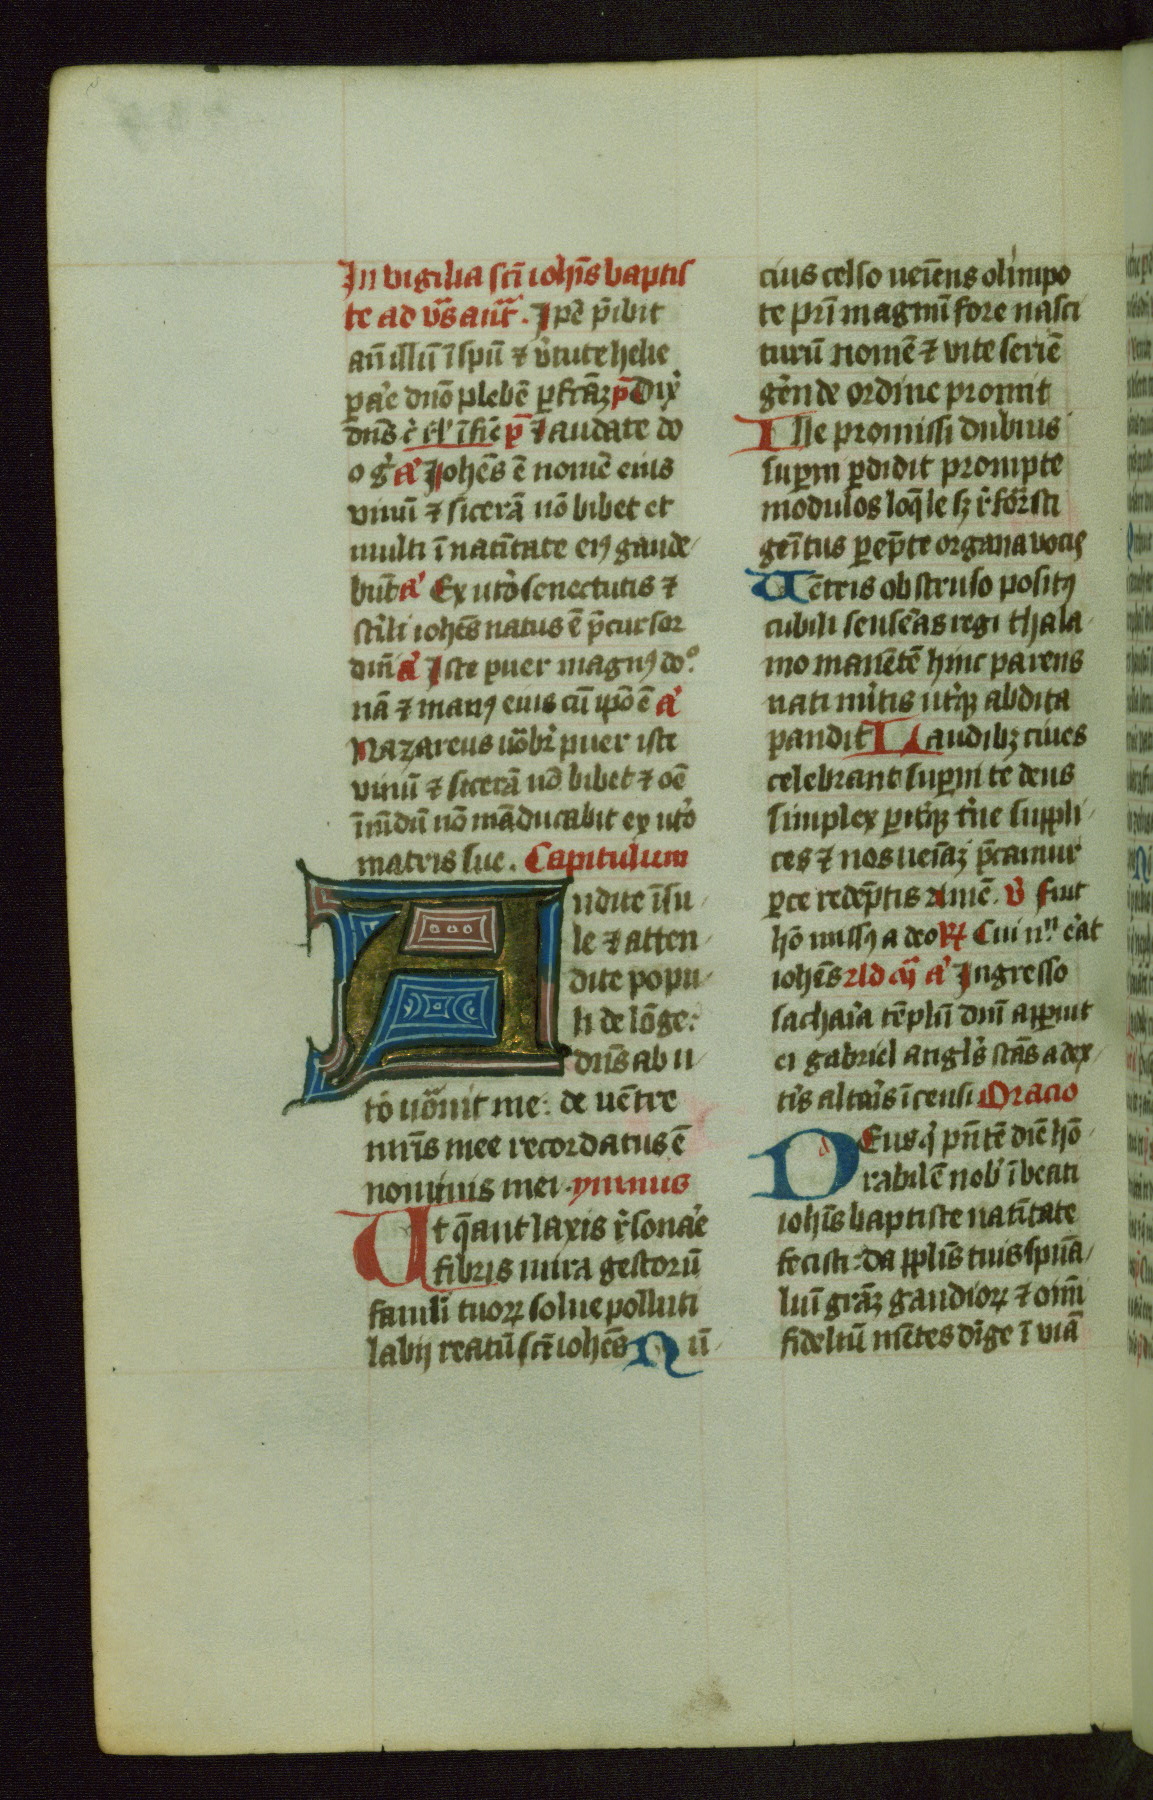 In vigilia sc̄i ioh̄is baptis
te ad v̄s̄ añt. Ip̄e p̄ibit
an̄ illū ī spū ⁊ v̓tute helie
pa̓e dño plebē p̄fc̄āz p̄ Dix̓
dñs p̄ Laudate do
a̓ Iohēs ē nomē eius
vinū ⁊ sicerā nō bibet et
multi ī natītate eiꝯ gaude
būt a̓ Ex ut̓o senectutis ⁊
st̓ili iohēs natus ē p̄cursor
dn̄i a̓ Iste puer magnꝯ co°
nā ⁊ manꝯ eius cū ip̄o ē a̓
Nazareus uo̅b̓r puer iste
vinū ⁊ sicerā nō bibet ⁊ oē
īmūdū nō māducabit ex ut̓o
matris sue. Capitulum
Audite īsu
le ⁊ atten
dite popu
li de lōge:
dñs ab u
t̓o uo̅auit me: de uētre
mr̄is mee recordatus ē
nominis mei. ymnus
Ut q̄ant laxis r̓sona̓e
fibris mira gestorū
famuli tuoꝝ solue polluti
labij reatū sc̄e iohēs Nū
cius celso ueīens olimpo
te pr̄i magnū fore nasci
turū nomē ⁊ vite seriē
ge̓nde ordine promit
Ille promissi dubius
sup̄ni p̄didit prompte
modulos loq̄le sꝫ r̓for̄sti
geītus p̄ep̄te organa vocis
Uētris obstruso positꝯ
cubili sense̓as regi thala
mo manētē hinc parens
nati m̓itis ut̓qꝫ abdita
pandit Laudibꝫ ciues
celebrant sup̄ni te deus
simplex p̄it̓qꝫ t̓ne suppli
ces ⁊ nos ueīaꝫ p̄camur
p̄ce redēptis amē. v̓ fuit
hō missꝯ a deo ℟ Cui nⁿ e̓at
iohēs Ad a̓ Ingresso
sachar̓ia tēplū dn̄i apparuit
ei gabriel anglꝯ stās a dex
tis̓ altar̓is īcensi Oracio
DEus q̓ pn̄tē diē hō
rabilē nob̓ ī beati
ioh̄is baptiste natītate
fecisti: da pplīs tuis spūa
luī gr̄āꝫ gaudioꝝ ⁊ oīm̄
fideliū mētes di̓ge ī viā